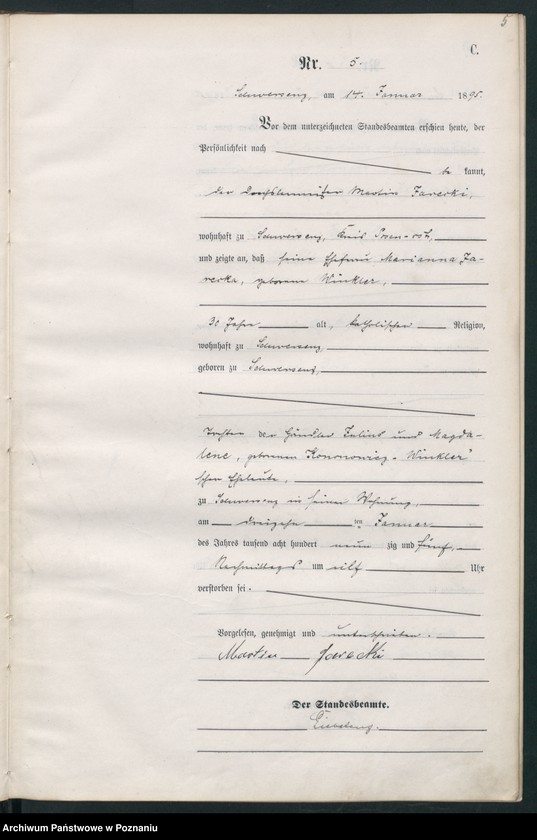 5
C.
Nr. 5.
Schwersenz, am 14. Januar 1895.
Vor dem unterzeichneten Standesbeamten erschien heute, der
Persönlichkeit nach
be kannt,
der Martin Jarecki,
wohnhaft zu Schwersenz, Kreis Posen-Ost,
und zeigte an, daß seine Ehefrau Marianna Ja-
recka, geborene Winkler,
30 Jahre alt, katholischer Religion,
wohnhaft zu Schwersenz
geboren zu Schwersenz,
Tochter der Händler Julius und Magda-
lene, geborenen Kononowicz-Winkler'
schen Eheleute,
zu Schwersenz in seiner Wohnung,
am dreizehn ten Januar
des Jahres tausend acht hundert neun zig und fünf,
Nachmittags um elf Uhr
verstorben sei.
Vorgelesen, genehmigt und unterschrieben.
Martin Jarecki
Der Standesbeamte.
Archiwum Państwowe w Poznaniu